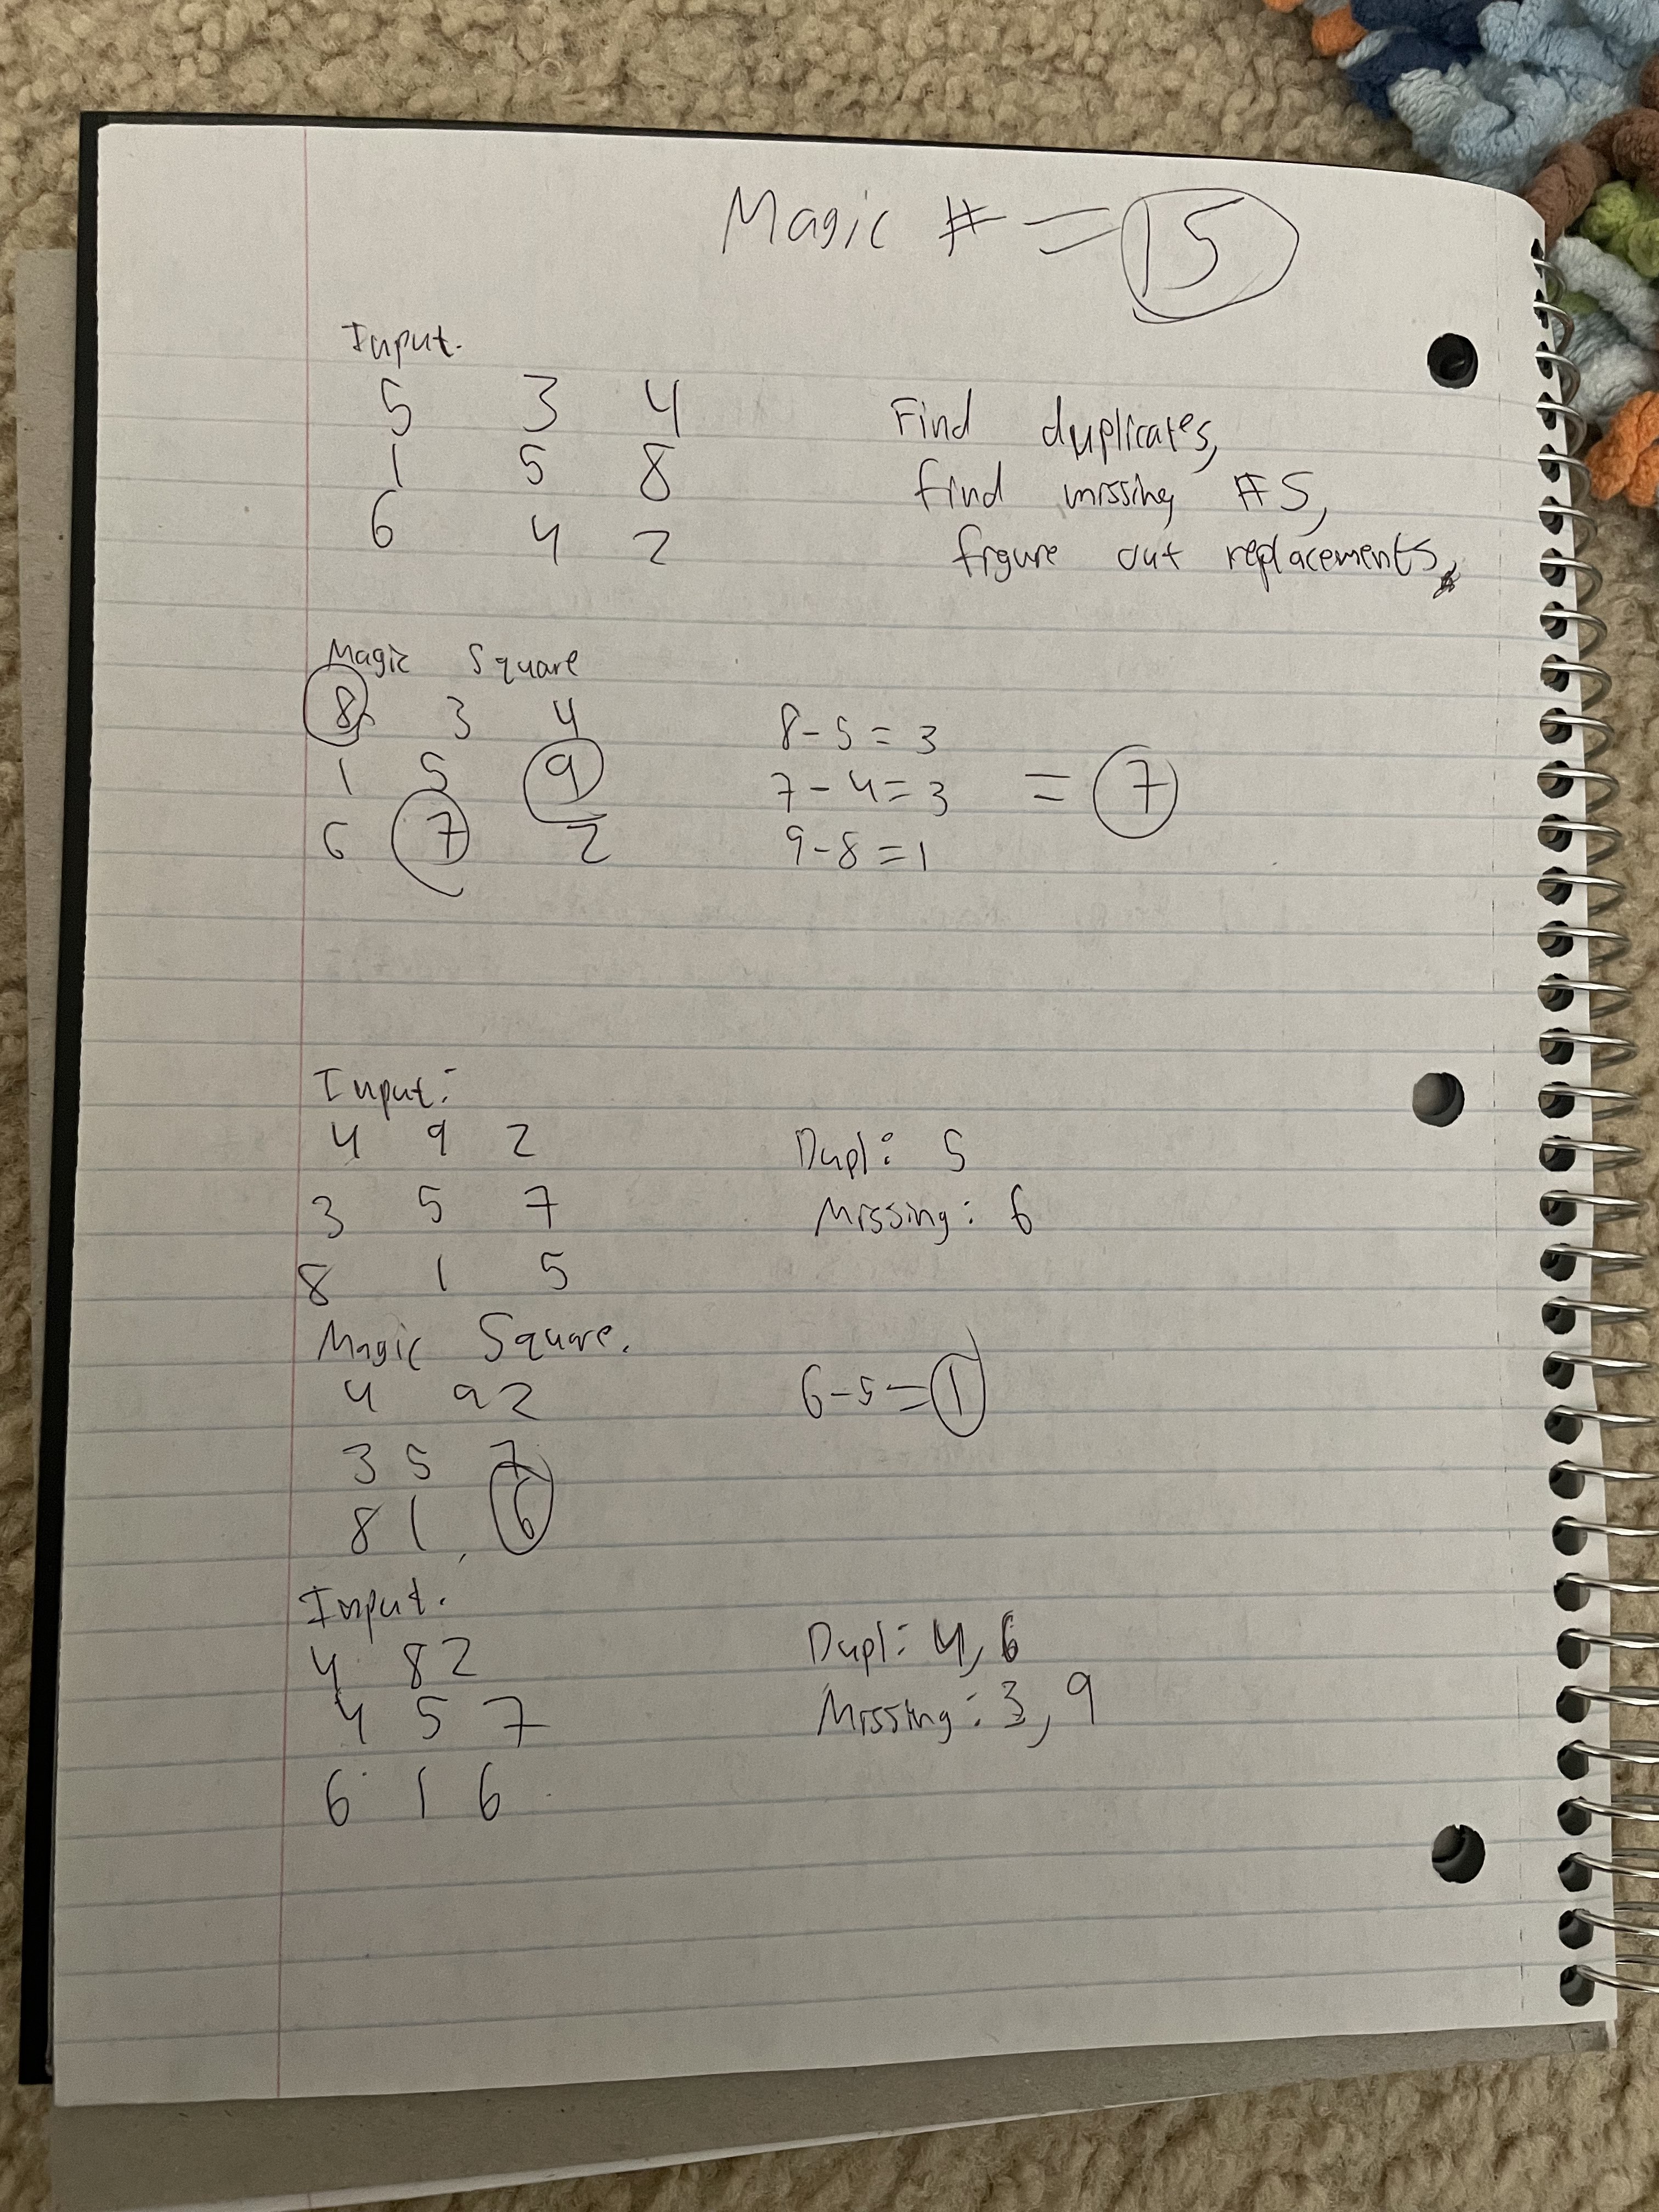 Magic # = 15
Input.
5 3 4
1 5 8
6 4 2
Find duplicates,
find missing #s,
figure out replacements,
Magic Square
8 3 4
1 5 9
6 7 2
8-5=3
7-4=3 = 7
9-8=1
Input:
4 9 2
3 5 7
8 1 5
Dupl: 5
Missing: 6
Magic Square.
4 9 2
3 5 7
8 1 6
6-5=1
Input.
4 8 2
4 5 7
6 1 6
Dupl: 4, 6
Missing: 3, 9